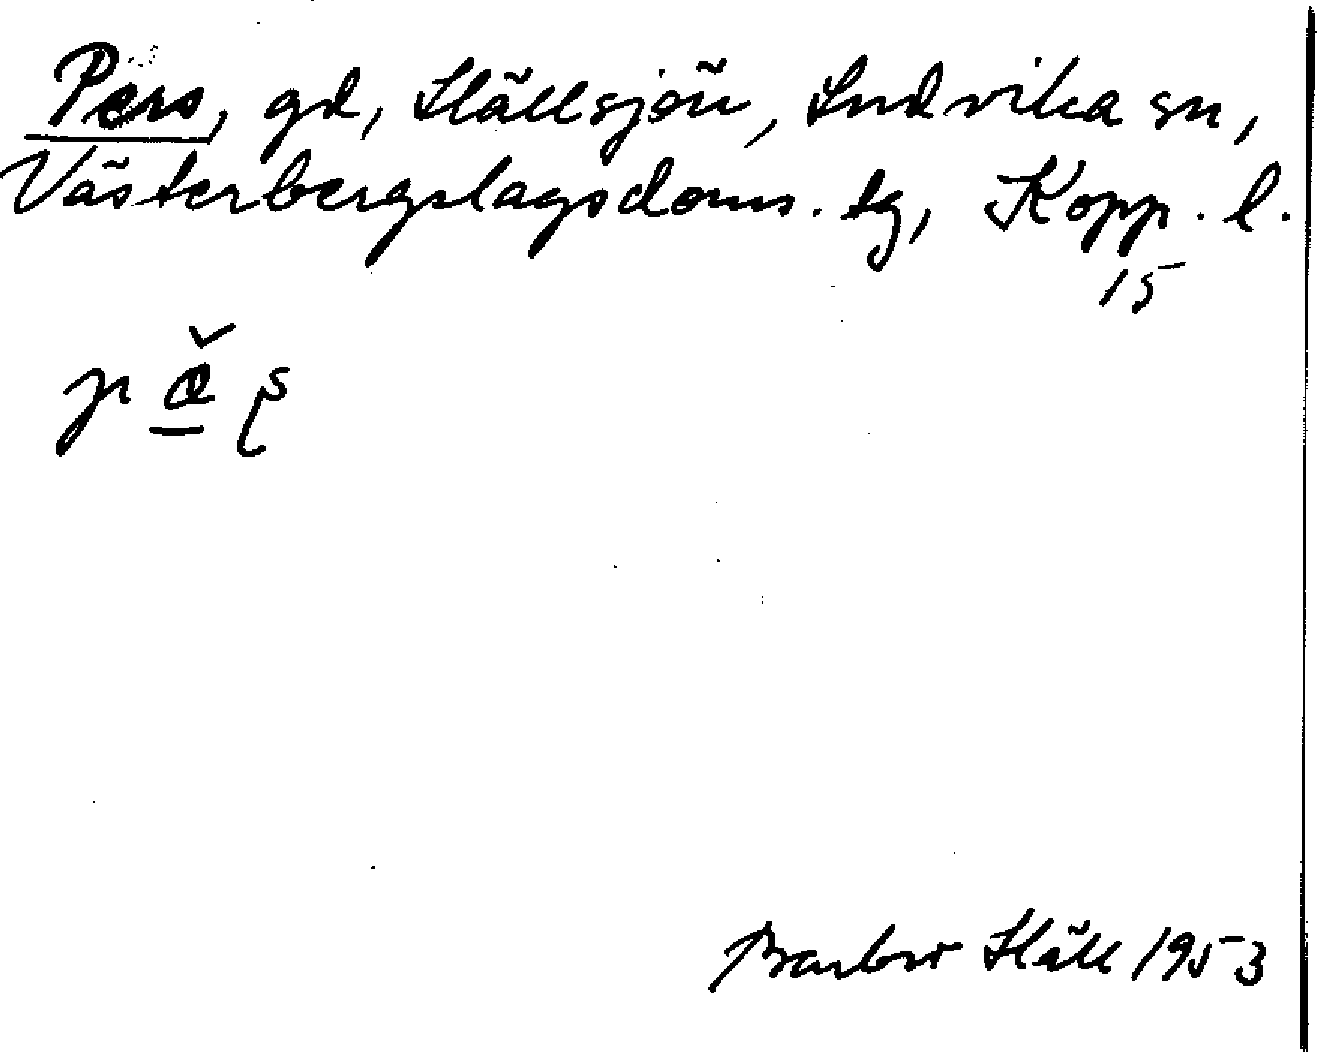 Pers, gd, Hällsjön, Ludvika sn,
Västerbergslagsdoms. tg, Kopp. l.
15
Barbro Häll 1953